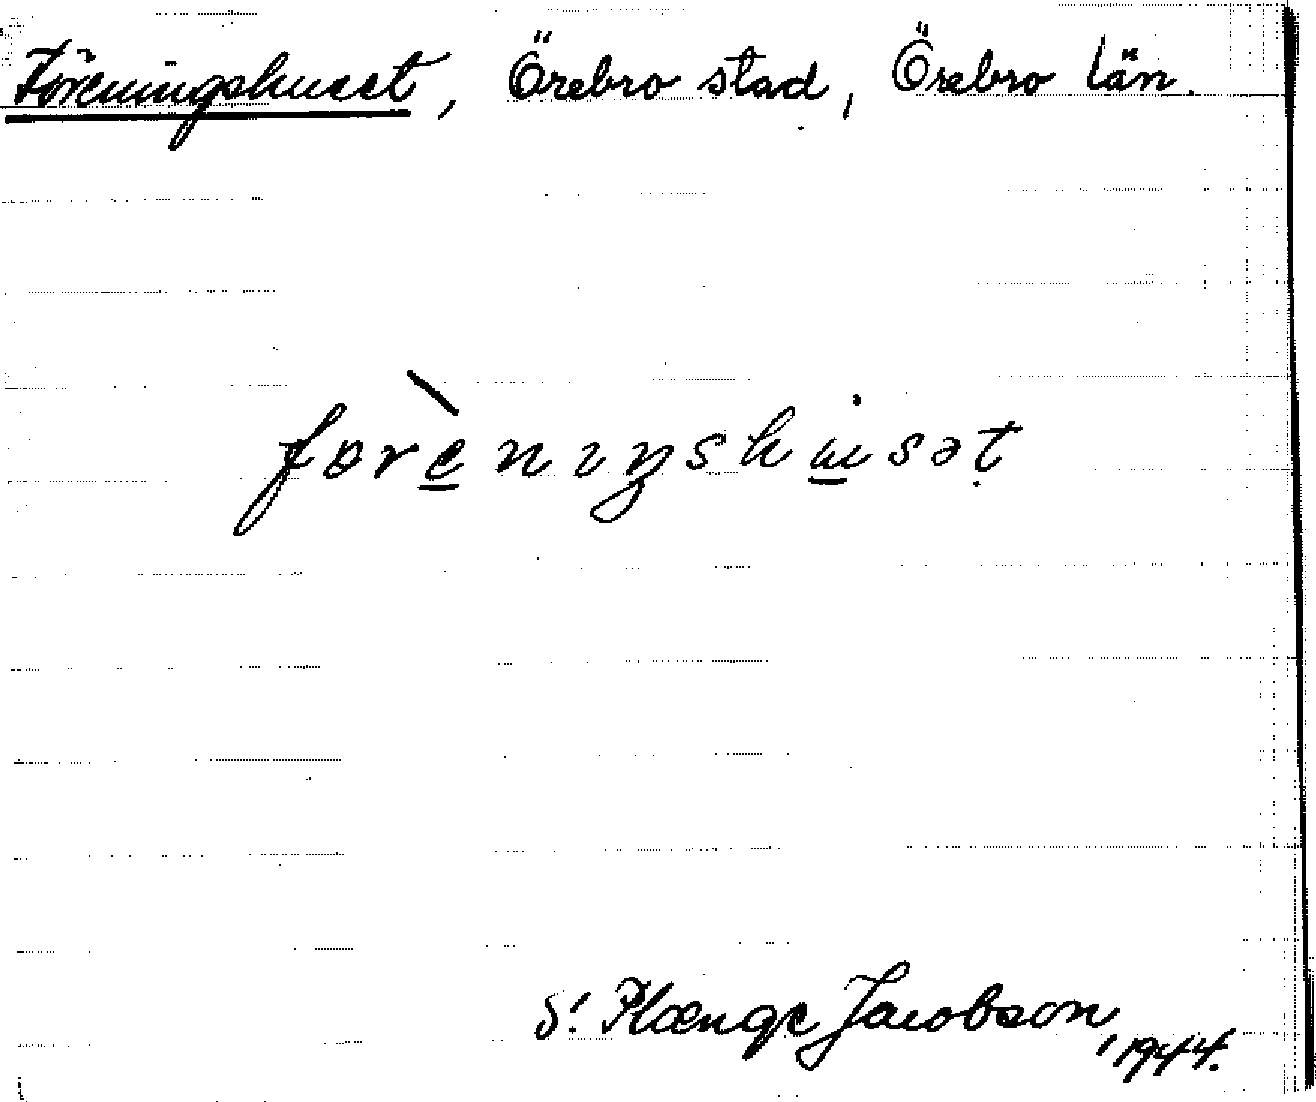 Föreningshuset, Örebro stad, Örebro län.
förèniŋshʉsət
S. Plænge Jacobson, 1944.